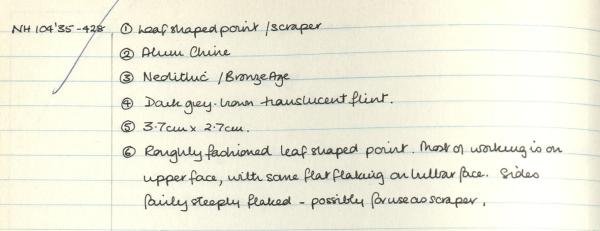 NH 104'35-428 ① Leaf shaped point / scraper
② Alum Chine
③ Neolithic / Bronze Age
④ Dark grey-brown translucent flint.
⑤ 3.7cm x 2.7cm.
⑥ Roughly fashioned leaf shaped point. Most of working is on
upper face, with some flat flaking on bulbar face. Sides
fairly steeply flaked - possibly for use as scraper.